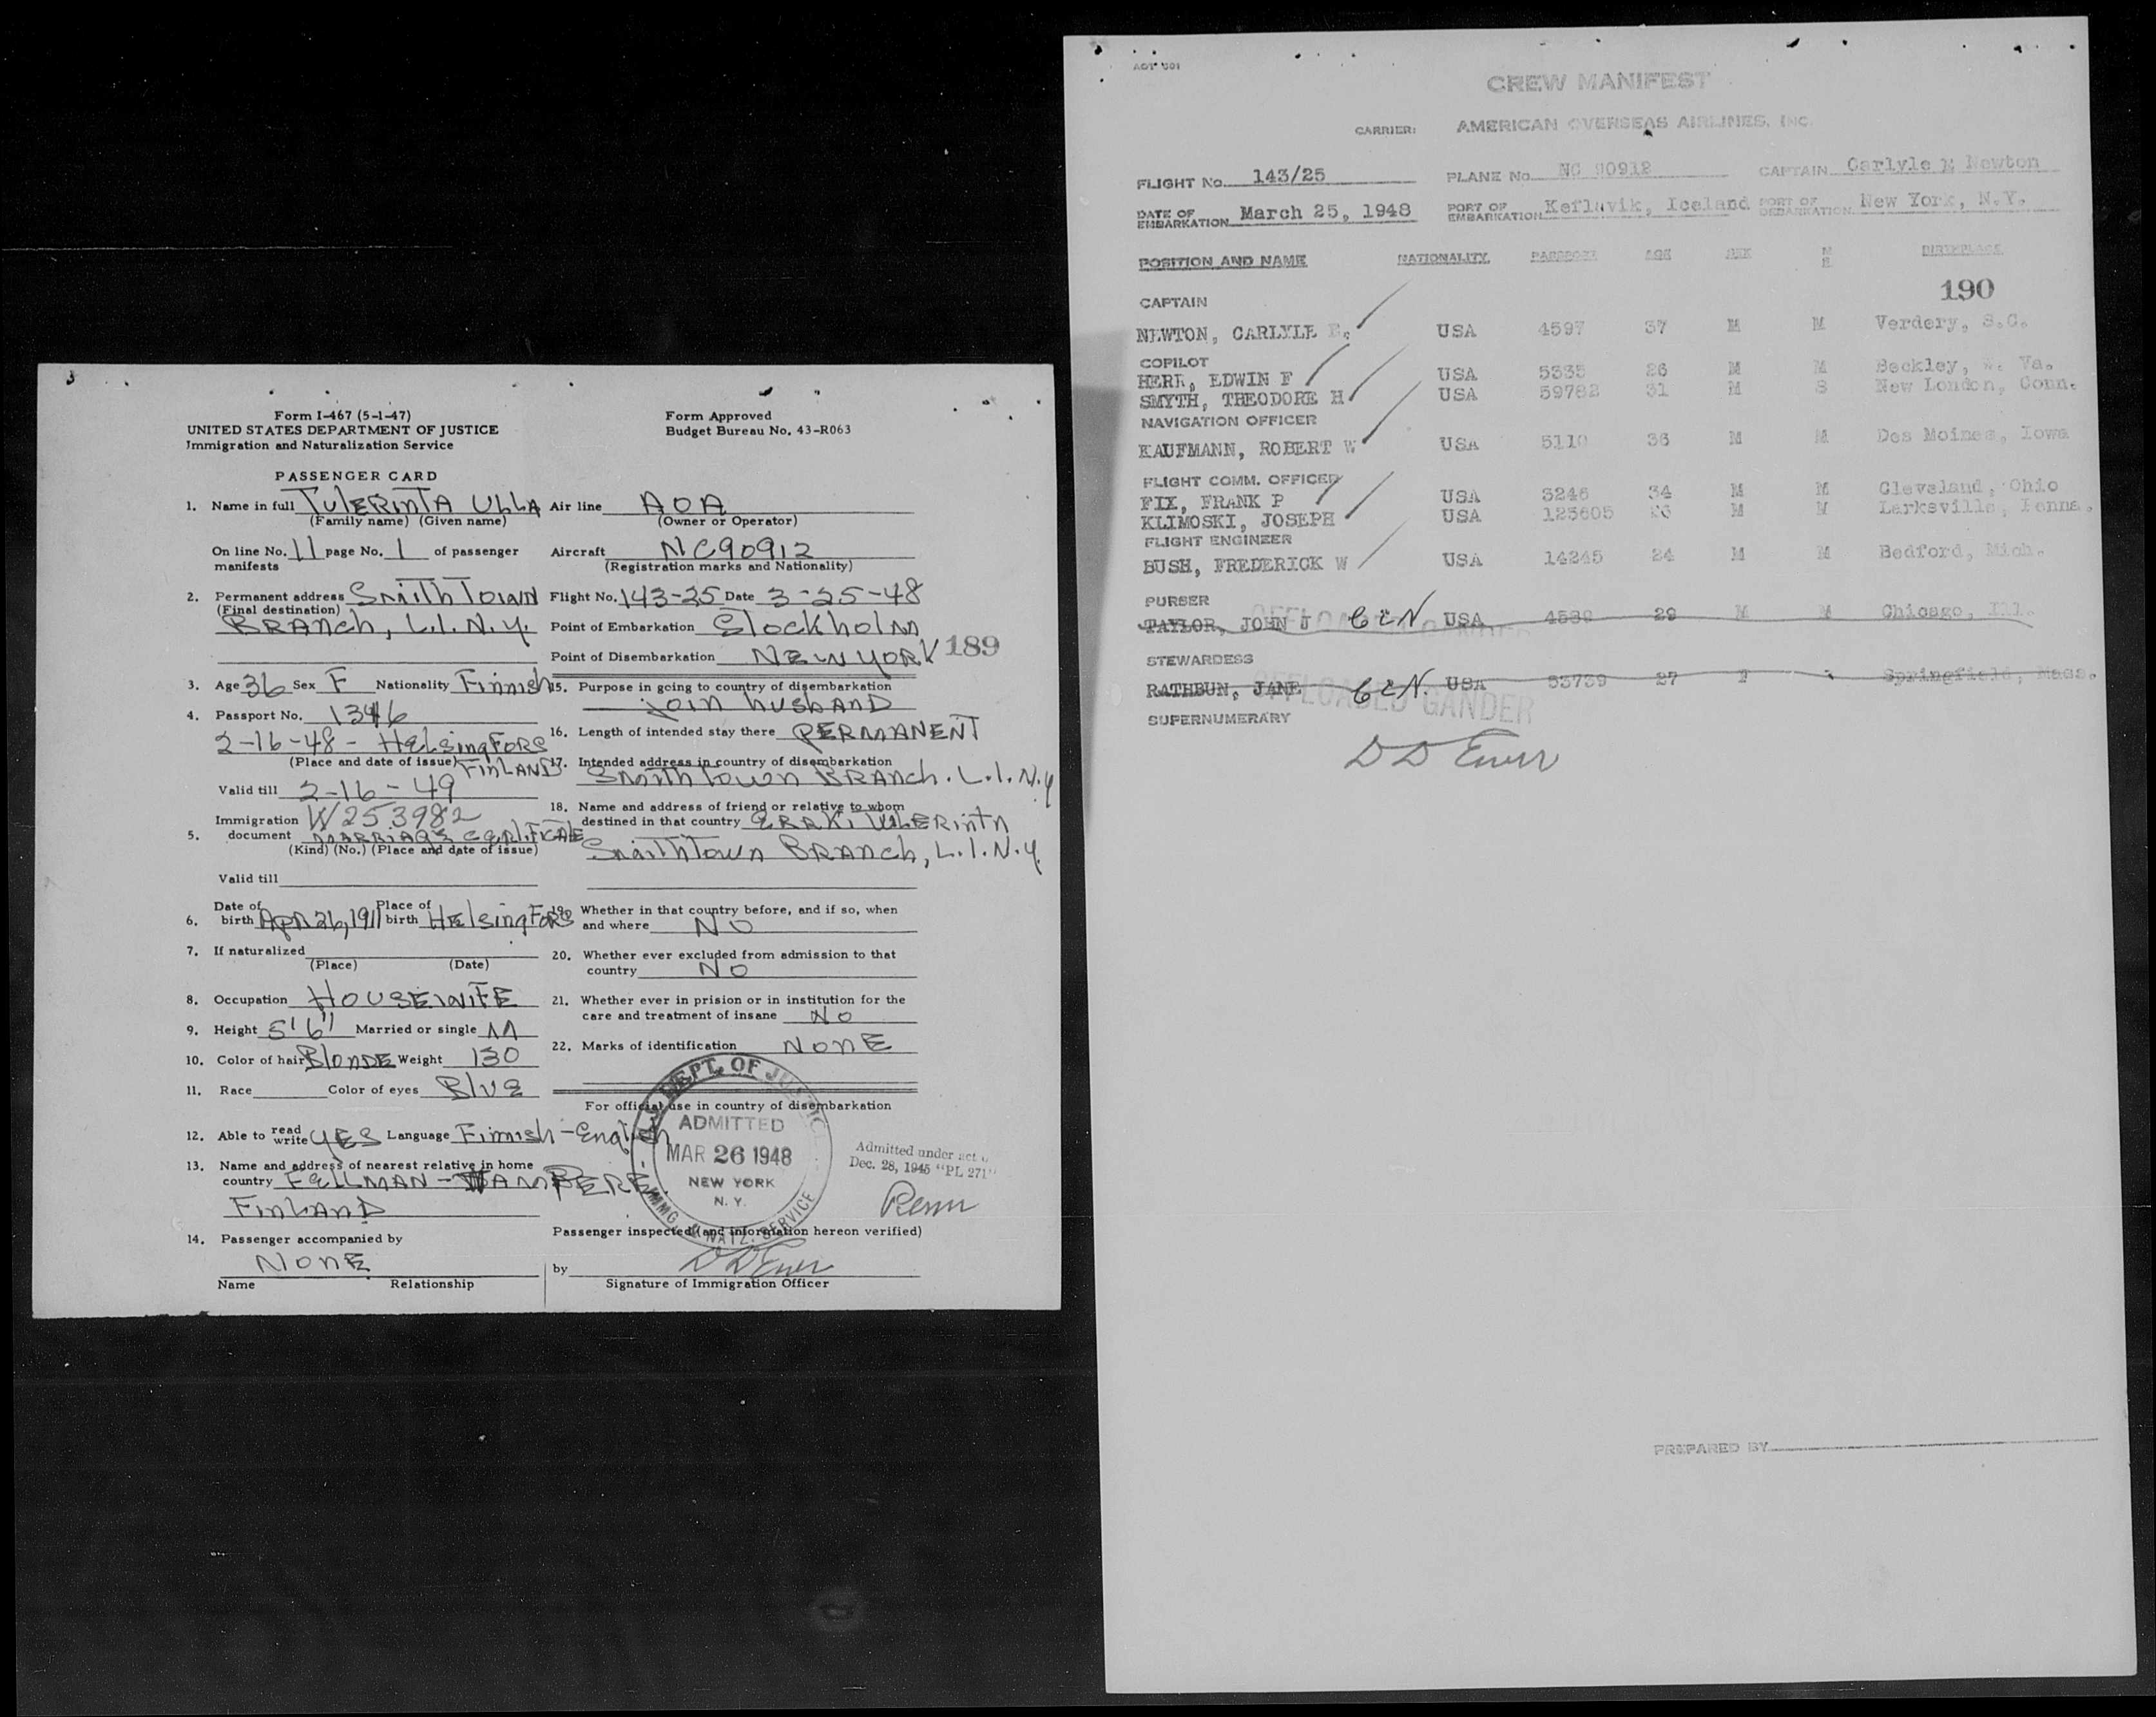 Form I-467 (5-1-47)
UNITED STATES DEPARTMENT OF JUSTICE
Immigration and Naturalization Service
Form Approved
Budget Bureau No. 43-R063
PASSENGER CARD
1. Name in full TULERINTA ULLA
(Family name) (Given name)
On line No. 11 page No. 1 of passenger
manifests
2. Permanent address SMITHTOWN
(Final destination)
BRANCH, L.I.N.Y.
3. Age 36 Sex F Nationality Finnish
4. Passport No. 1346
2-16-48 - HELSINGFORS
(Place and date of issue) FINLAND
Valid till 2-16-49
Immigration W253982
5. document MARRIAGE CERTIFICATE
(Kind) (No.) (Place and date of issue)
Valid till
Date of Place of
6. birth APR 26, 1911 birth HELSINGFORS
7. If naturalized
(Place) (Date)
8. Occupation HOUSEWIFE
9. Height 5'6" Married or single M
10. Color of hair BLONDE Weight 130
11. Race Color of eyes Blue
12. Able to read write YES Language Finnish-English
13. Name and address of nearest relative in home
country FELLMAN - TAMPERE
FINLAND
14. Passenger accompanied by
NONE
Name Relationship
Air line AOA
(Owner or Operator)
Aircraft NC90912
(Registration marks and Nationality)
Flight No. 143-25 Date 3-25-48
Point of Embarkation Stockholm
Point of Disembarkation NEW YORK 189
15. Purpose in going to country of disembarkation
JOIN HUSBAND
16. Length of intended stay there PERMANENT
17. Intended address in country of disembarkation
Smithtown BRANCH. L.I.N.Y
18. Name and address of friend or relative to whom
destined in that country
Smithtown BRANCH, L.I.N.Y.
19. Whether in that country before, and if so, when
and where NO
20. Whether ever excluded from admission to that
country NO
21. Whether ever in prision or in institution for the
care and treatment of insane NO
22. Marks of identification NONE
For official use in country of disembarkation
U.S. DEPT. OF JUSTICE
ADMITTED
MAR 26 1948
NEW YORK
N. Y.
IMMG. & NATZ. SERVICE
Admitted under act
Dec. 28, 1945 "PL 271"
Passenger inspected (and information hereon verified)
by
Signature of Immigration Officer
CREW MANIFEST
CARRIER: AMERICAN OVERSEAS AIRLINES, INC.
FLIGHT No. 143/25 PLANE No. NC 90912 CAPTAIN Carlyle E Newton
DATE OF EMBARKATION March 25, 1948 PORT OF EMBARKATION Keflavik, Iceland PORT OF DEBARKATION New York, N.Y.
POSITION AND NAME NATIONALITY PASSPORT AGE SEX M S BIRTHPLACE
190
CAPTAIN
NEWTON, CARLYLE E. USA 4597 37 M M Verdery, S.C.
COPILOT
HERR, EDWIN F USA 5335 26 M M Beckley, W. Va.
SMYTH, THEODORE H USA 59782 31 M S New London, Conn.
NAVIGATION OFFICER
KAUFMANN, ROBERT W USA 5110 36 M M Des Moines, Iowa
FLIGHT COMM. OFFICER
FIX, FRANK P USA 3246 34 M M Cleveland, Ohio
KLIMOSKI, JOSEPH USA 123605 26 M M Larksville, Penna.
FLIGHT ENGINEER
BUSH, FREDERICK W USA 14245 24 M M Bedford, Mich.
PURSER
TAYLOR, JOHN J USA 4589 29 M M Chicago, Ill.
OFFLOADED GANDER
STEWARDESS
RATHBUN, JANE USA 53739 27 F Springfield, Mass.
OFFLOADED GANDER
SUPERNUMERARY
PREPARED BY